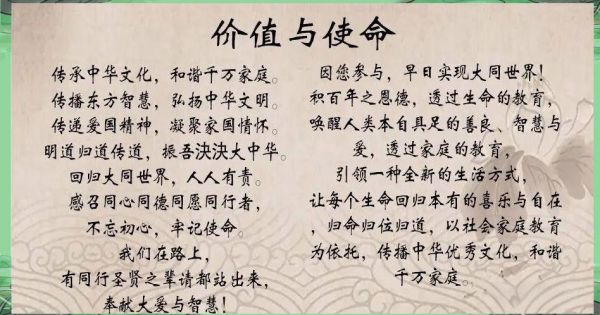 价值与使命
传承中华文化，和谐千万家庭。
传播东方智慧，弘扬中华文明。
传递爱国精神，凝聚家国情怀。
明道归道传道，振吾泱泱大中华。
回归大同世界，人人有责。
感召同心同德同愿同行者，
不忘初心，牢记使命。
我们在路上，
有同行圣贤之辈请都站出来，
奉献大爱与智慧！
因您参与，早日实现大同世界！
积百年之恩德，透过生命的教育，
唤醒人类本自具足的善良、智慧与
爱，透过家庭的教育，
引领一种全新的生活方式，
让每个生命回归本有的喜乐与自在
，归命归位归道，以社会家庭教育
为依托，传播中华优秀文化，和谐
千万家庭。